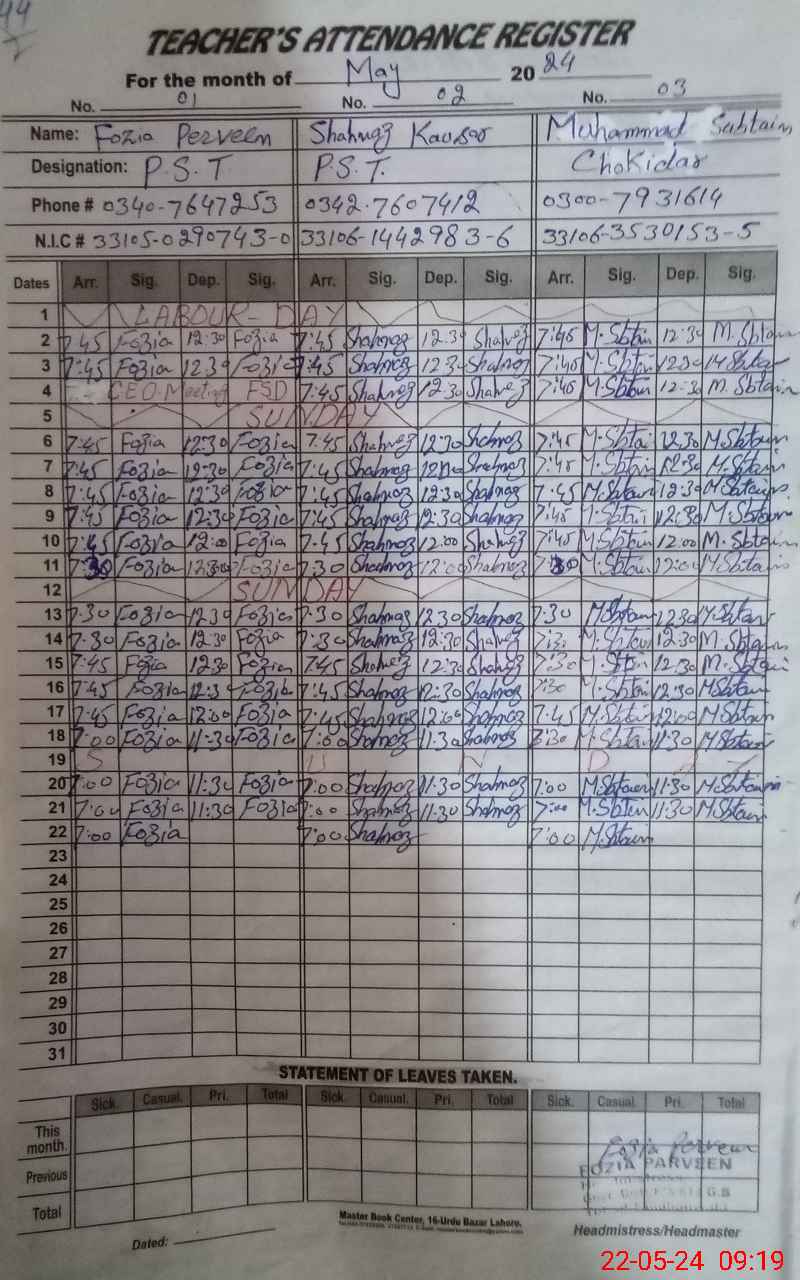 44
TEACHER'S ATTENDANCE REGISTER
For the month of May 2024
No. 01 No. 02 No. 03
Name: Fozia Perveen Shahnaz Kausar Muhammad Sabtain
Designation: P.S.T P.S.T. Chokidar
Phone # 0340-7647253 0342-7607412 0300-7931614
N.I.C # 33105-0290743-0 33106-1442983-6 33106-3530153-5
Dates Arr. Sig. Dep. Sig. Arr. Sig. Dep. Sig. Arr. Sig. Dep. Sig.
1 LABOUR-DAY
2 7:45 Fozia 12:30 Fozia 7:45 Shahnaz 12:30 Shahnaz 7:45 M.Sbtain 12:30 M.Sbtain
3 7:45 Fozia 12:30 Fozia 7:45 Shahnaz 12:30 Shahnaz 7:45 M.Sbtain 12:30 M.Sbtain
4 CEO Meeting FSD 7:45 Shahnaz 12:30 Shahnaz 7:45 M.Sbtain 12:30 M.Sbtain
5 SUNDAY
6 7:45 Fozia 12:30 Fozia 7:45 Shahnaz 12:30 Shahnaz 7:45 M.Sbtain 12:30 M.Sbtain
7 7:45 Fozia 12:30 Fozia 7:45 Shahnaz Shahnaz 7:45 M.Sbtain 12:30 M.Sbtain
8 7:45 Fozia 12:30 Fozia 7:45 Shahnaz 12:30 Shahnaz 7:45 M.Sbtain 12:30 M.Sbtain
9 7:45 Fozia 12:30 Fozia 7:45 Shahnaz 12:30 Shahnaz 7:45 M.Sbtain 12:30 M.Sbtain
10 7:45 Fozia 12:00 Fozia 7:45 Shahnaz 12:00 Shahnaz 7:45 M.Sbtain 12:00 M.Sbtain
11 7:30 Fozia Fozia 7:30 Shahnaz 12:00 Shahnaz 7:30 M.Sbtain 12:00 M.Sbtain
12 SUNDAY
13 7:30 Fozia 12:30 Fozia 7:30 Shahnaz 12:30 Shahnaz 7:30 M.Sbtain 12:30 M.Sbtain
14 7:30 Fozia 12:30 Fozia 7:30 Shahnaz 12:30 Shahnaz 7:30 M.Sbtain 12:30 M.Sbtain
15 7:45 Fozia 12:30 Fozia 7:45 Shahnaz 12:30 Shahnaz 7:30 M.Sbtain 12:30 M.Sbtain
16 7:45 Fozia 12:30 Fozia 7:45 Shahnaz 12:30 Shahnaz 7:30 M.Sbtain 12:30 M.Sbtain
17 7:45 Fozia 12:00 Fozia 7:45 Shahnaz 12:00 Shahnaz 7:45 M.Sbtain 12:00 M.Sbtain
18 7:00 Fozia 11:30 Fozia 7:00 Shahnaz 11:30 Shahnaz M.Sbtain 11:30 M.Sbtain
19 S U N D A Y
20 7:00 Fozia 11:30 Fozia 7:00 Shahnaz 11:30 Shahnaz 7:00 M.Sbtain 11:30 M.Sbtain
21 7:00 Fozia 11:30 Fozia 7:00 Shahnaz 11:30 Shahnaz 7:00 M.Sbtain 11:30 M.Sbtain
22 7:00 Fozia 7:00 Shahnaz 7:00 M.Sbtain
23
24
25
26
27
28
29
30
31
STATEMENT OF LEAVES TAKEN.
Sick. Casual. Pri. Total Sick. Casual. Pri. Total Sick. Casual. Pri. Total
This month.
Previous
Total
Fozia Perveen
FOZIA PARVEEN
Master Book Center, 16-Urdu Bazar Lahore.
Dated:
Headmistress/Headmaster
22-05-24 09:19